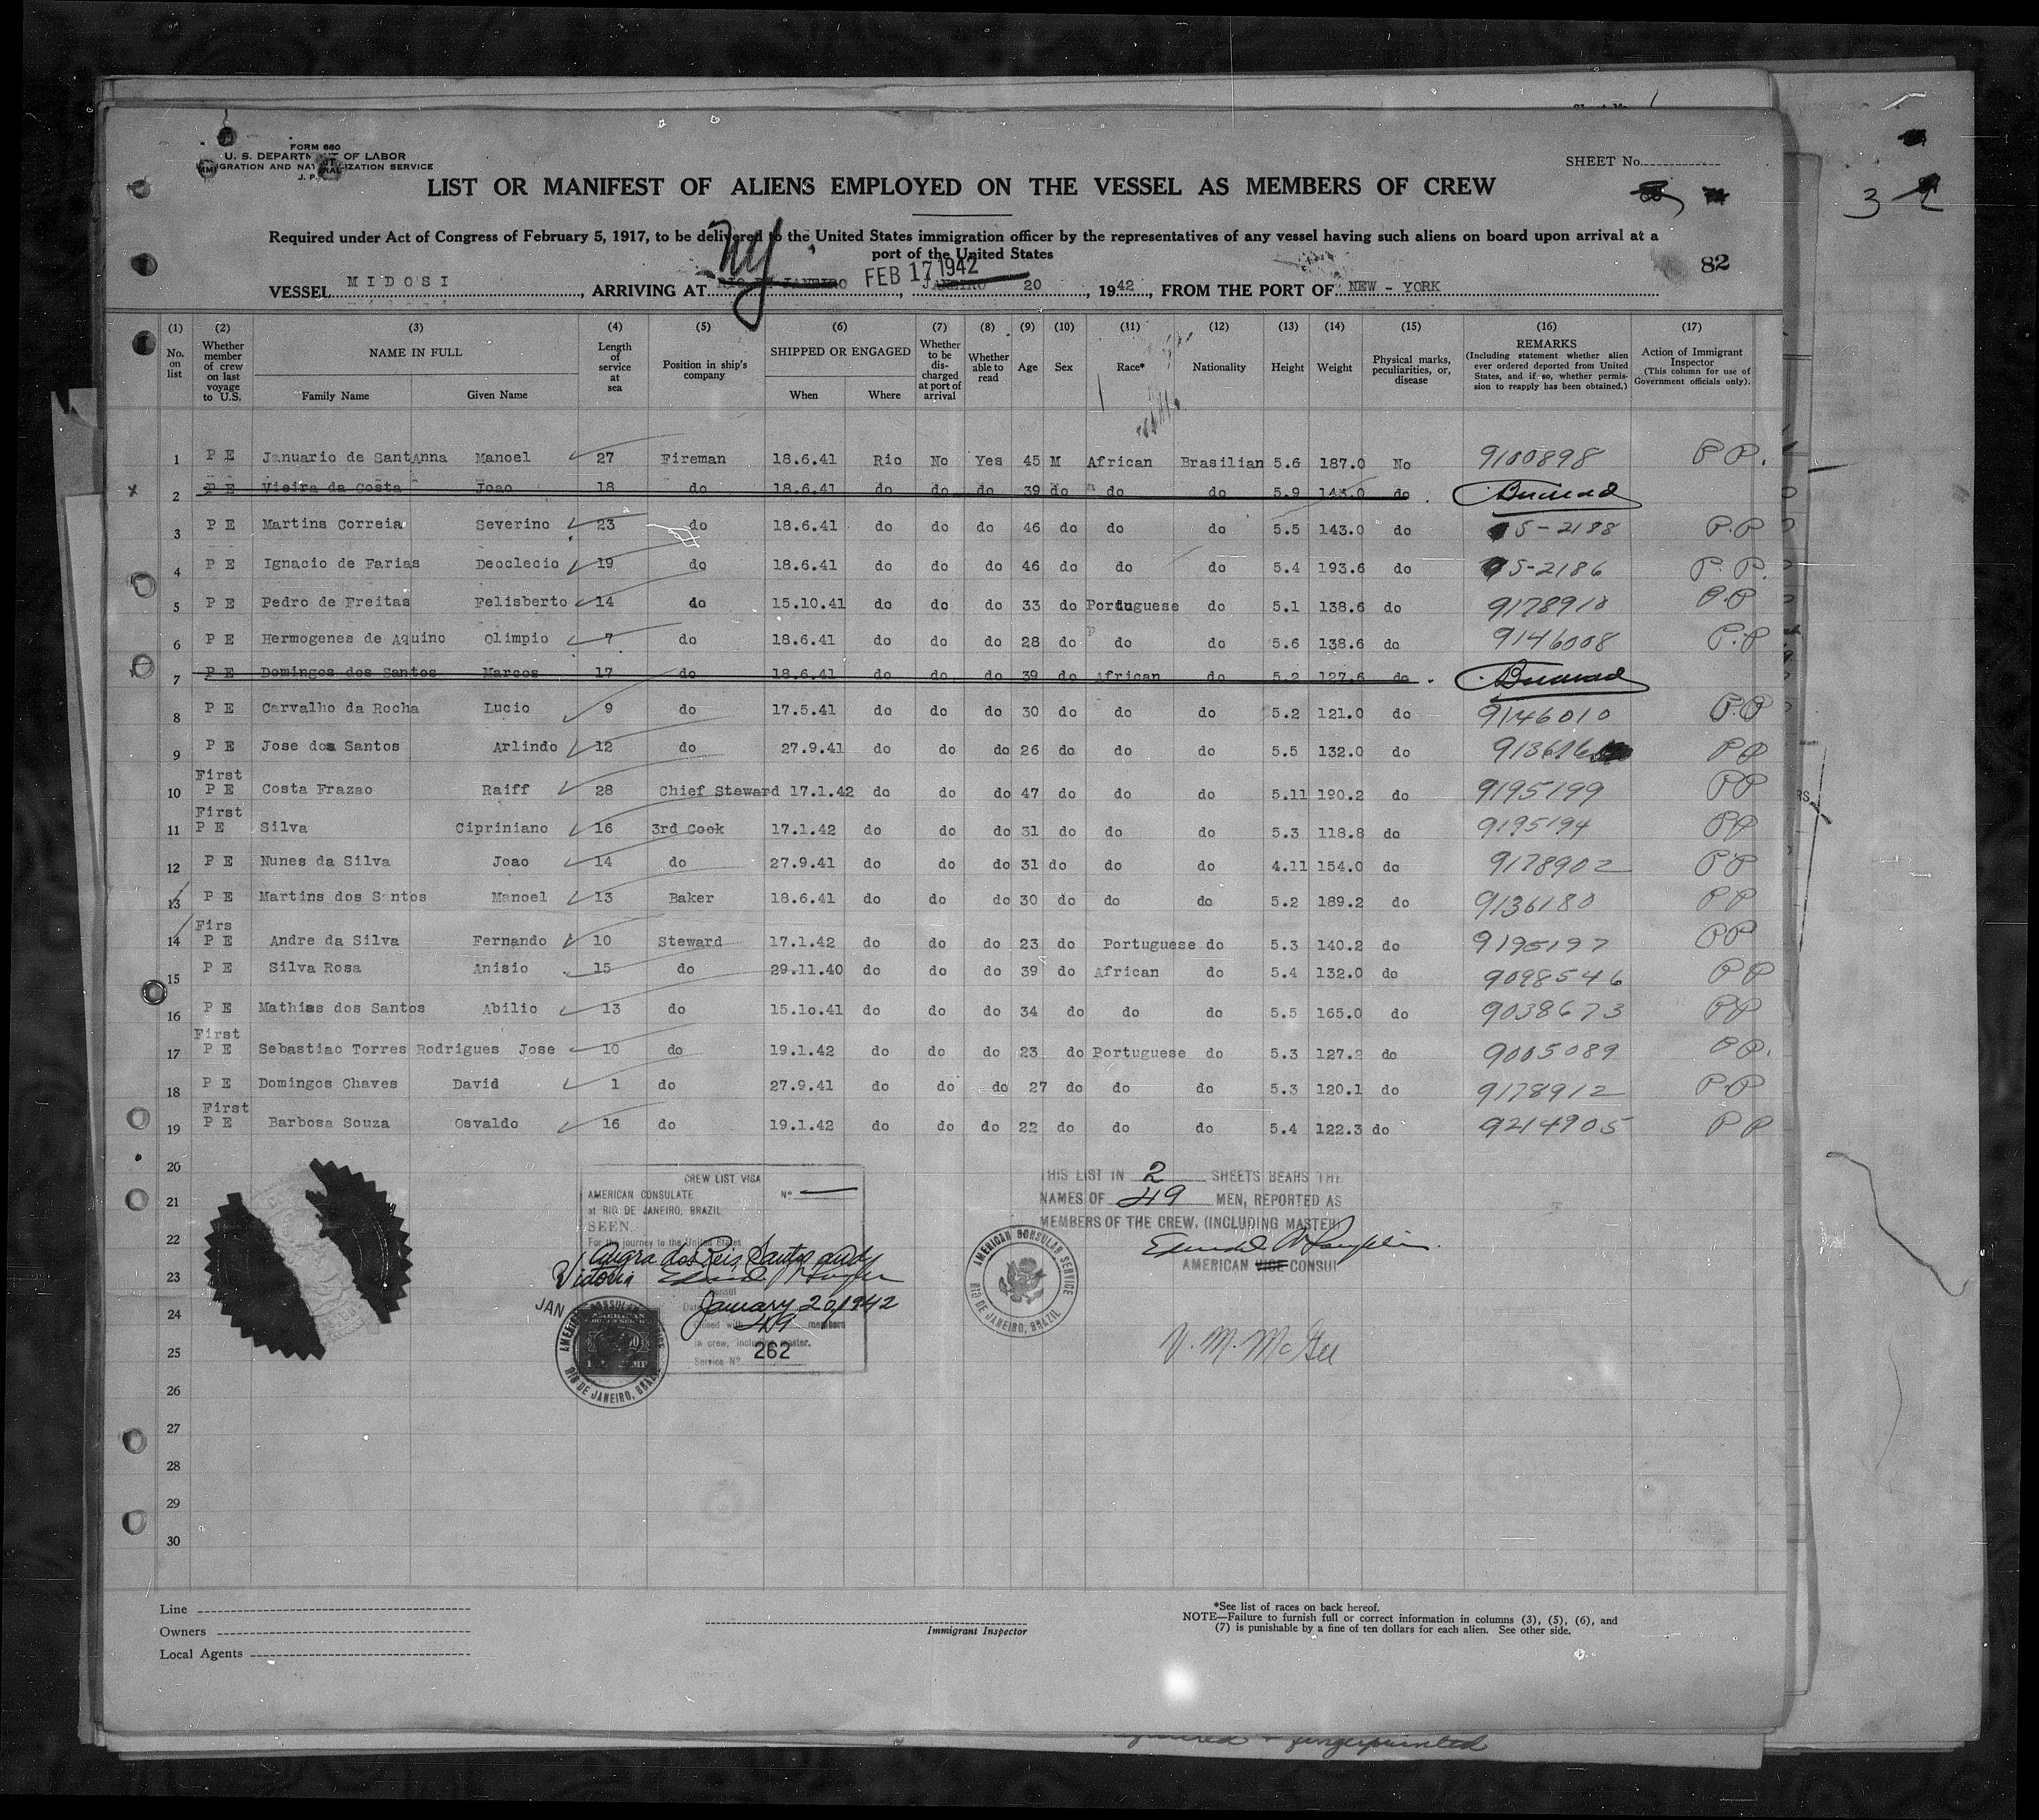 FORM 680
U. S. DEPARTMENT OF LABOR
IMMIGRATION AND NATURALIZATION SERVICE
SHEET No.
LIST OR MANIFEST OF ALIENS EMPLOYED ON THE VESSEL AS MEMBERS OF CREW
3
Required under Act of Congress of February 5, 1917, to be delivered to the United States immigration officer by the representatives of any vessel having such aliens on board upon arrival at a
port of the United States
82
VESSEL MIDOSI, ARRIVING AT RIO DE JANEIRO NY FEB 17 1942, JANEIRO 20, 1942, FROM THE PORT OF NEW - YORK
(1) (2) (3) (4) (5) (6) (7) (8) (9) (10) (11) (12) (13) (14) (15) (16) (17)
No. on list Whether member of crew on last voyage to U.S. NAME IN FULL Family Name Given Name Length of service at sea Position in ship's company SHIPPED OR ENGAGED When Where Whether to be discharged at port of arrival Whether able to read Age Sex Race* Nationality Height Weight Physical marks, peculiarities, or, disease REMARKS (Including statement whether alien ever ordered deported from United States, and if so, whether permission to reapply has been obtained.) Action of Immigrant Inspector (This column for use of Government officials only).
1 P E Januario de SantAnna Manoel 27 Fireman 18.6.41 Rio No Yes 45 M African Brasilian 5.6 187.0 No 9100898 P P.
2 P E Vieira da Costa Joao 18 do 18.6.41 do do do 39 do do do 5.9 143.0 do
3 P E Martins Correia Severino 23 do 18.6.41 do do do 46 do do do 5.5 143.0 do 5-2188 P.P
4 P E Ignacio de Farias Deoclecio 19 do 18.6.41 do do do 46 do do do 5.4 193.6 do 5-2186 P. P.
5 P E Pedro de Freitas Felisberto 14 do 15.10.41 do do do 33 do Portuguese do 5.1 138.6 do 9178910 P P
6 P E Hermogenes de Aquino Olimpio 7 do 18.6.41 do do do 28 do do do 5.6 138.6 do 9146008 P.P
7 P E Domingos dos Santos Marcos 17 do 18.6.41 do do do 39 do African do 5.2 127.6 do
8 P E Carvalho da Rocha Lucio 9 do 17.5.41 do do do 30 do do do 5.2 121.0 do 9146010 P.P
9 P E Jose dos Santos Arlindo 12 do 27.9.41 do do do 26 do do do 5.5 132.0 do P P
10 First P E Costa Frazao Raiff 28 Chief Steward 17.1.42 do do do 47 do do do 5.11 190.2 do 9195199 P P
11 First P E Silva Cipriniano 16 3rd Cook 17.1.42 do do do 31 do do do 5.3 118.8 do 9195194 P P
12 P E Nunes da Silva Joao 14 do 27.9.41 do do do 31 do do do 4.11 154.0 do 9178902 P P
13 P E Martins dos Santos Manoel 13 Baker 18.6.41 do do do 30 do do do 5.2 189.2 do 9136180 P P
14 Firs P E Andre da Silva Fernando 10 Steward 17.1.42 do do do 23 do Portuguese do 5.3 140.2 do 9195197 P P
15 P E Silva Rosa Anisio 15 do 29.11.40 do do do 39 do African do 5.4 132.0 do 9098546 P P
16 P E Mathias dos Santos Abilio 13 do 15.1o.41 do do do 34 do do do 5.5 165.0 do 9038673 P P
17 First P E Sebastiao Torres Rodrigues Jose 10 do 19.1.42 do do do 23 do Portuguese do 5.3 127.2 do 9005089 P P.
18 P E Domingos Chaves David 1 do 27.9.41 do do do 27 do do do 5.3 120.1 do 9178912 P P
19 First P E Barbosa Souza Osvaldo 16 do 19.1.42 do do do 22 do do do 5.4 122.3 do 9214905 P P
20
21
22
23
24
25
26
27
28
29
30
CREW LIST VISA
AMERICAN CONSULATE No
at RIO DE JANEIRO, BRAZIL
SEEN.
For the journey to the United States
Angra dos Reis, Santos and
Vidoria
Consul
JAN
Date January 20, 1942
Closed with 49 members
in crew, including master.
Service No 262
AMERICAN CONSULAR SERVICE
RIO DE JANEIRO, BRAZIL
THIS LIST IN 2 SHEETS BEARS THE
NAMES OF 49 MEN, REPORTED AS
MEMBERS OF THE CREW. (INCLUDING MASTER)
AMERICAN VICE CONSUL
AMERICAN CONSULAR SERVICE
RIO DE JANEIRO, BRAZIL
V. M. McGee
Line
Owners
Local Agents
Immigrant Inspector
*See list of races on back hereof.
NOTE—Failure to furnish full or correct information in columns (3), (5), (6), and
(7) is punishable by a fine of ten dollars for each alien. See other side.
fingerprinted